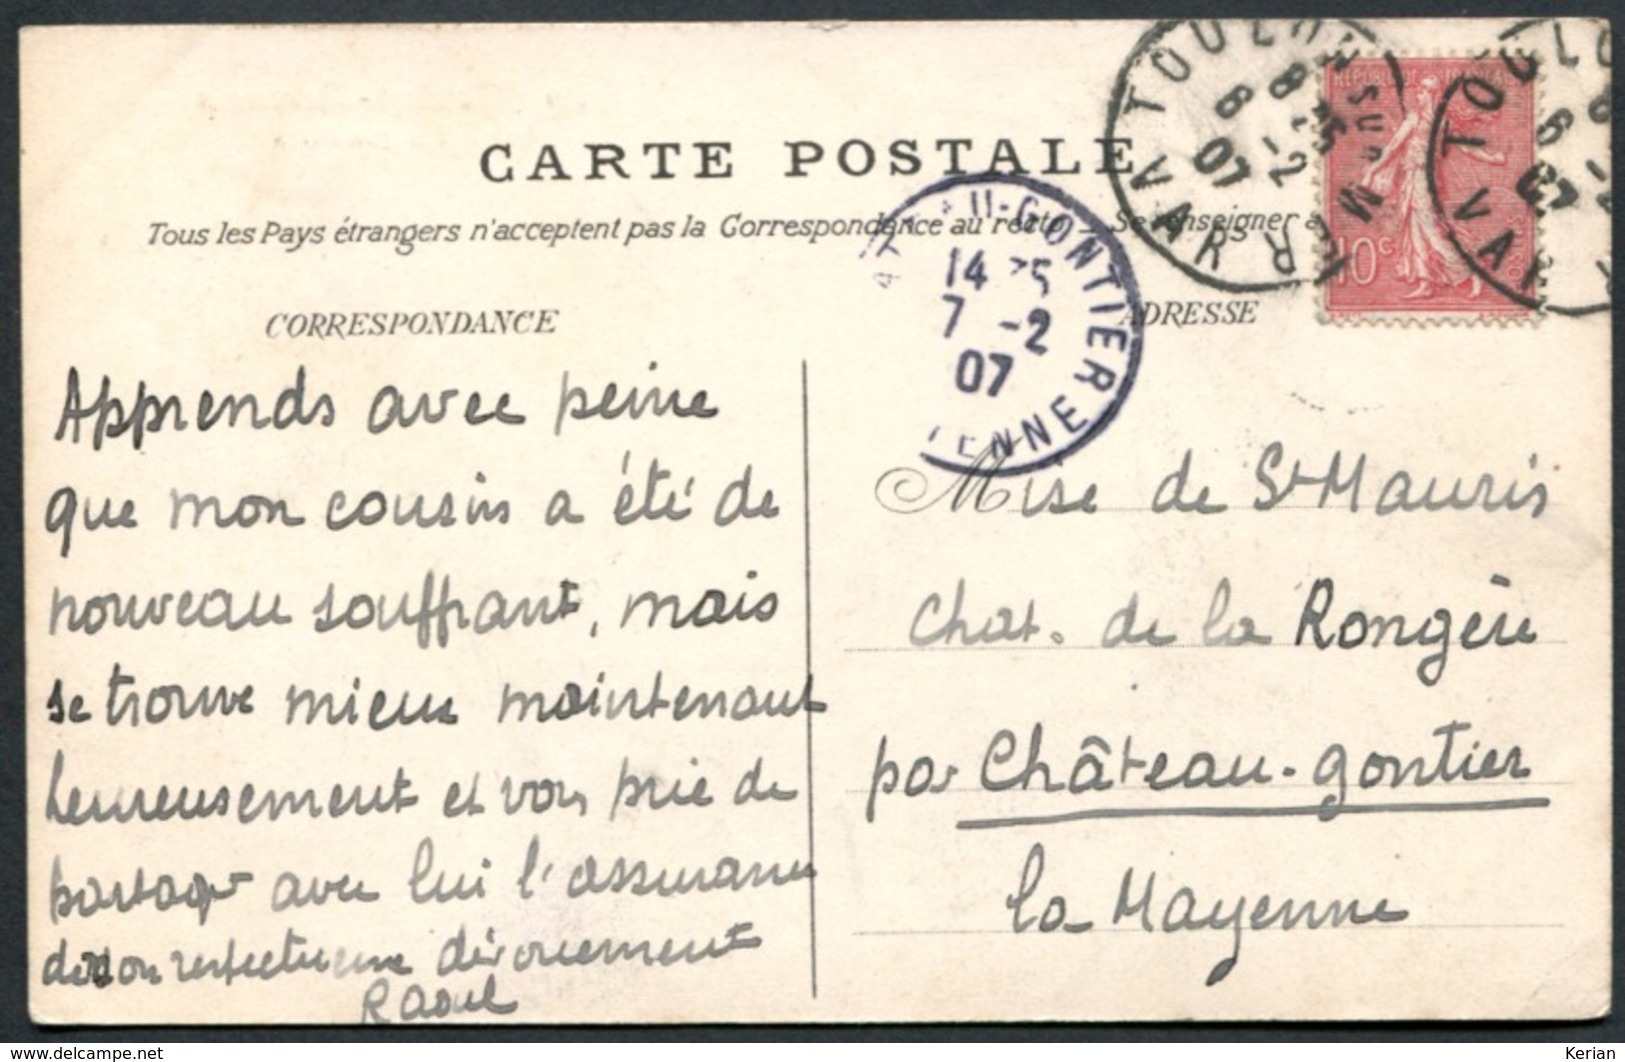 CARTE POSTALE
Tous les Pays étrangers n'acceptent pas la Correspondance au recto. Se renseigner à
CORRESPONDANCE
ADRESSE
TOULON SUR MER
8 25
6 -2
07
VAR
TOULO
8
6 -2
07
VAR
RÉPUBLIQUE FRANÇAISE
10c
POSTES
AT U-GONTIER
14 35
7 -2
07
ENNE
Apprends avec peine
que mon cousin a été de
nouveau souffrant, mais
se trouve mieux maintenant
heureusement et vous prie de
partager avec lui l'assurance
de mon respectueux dévouement
Raoul
Mise de St Mauris
Chat. de la Rongère
par Château-gontier
la Mayenne
www.delcampe.net
Kerian